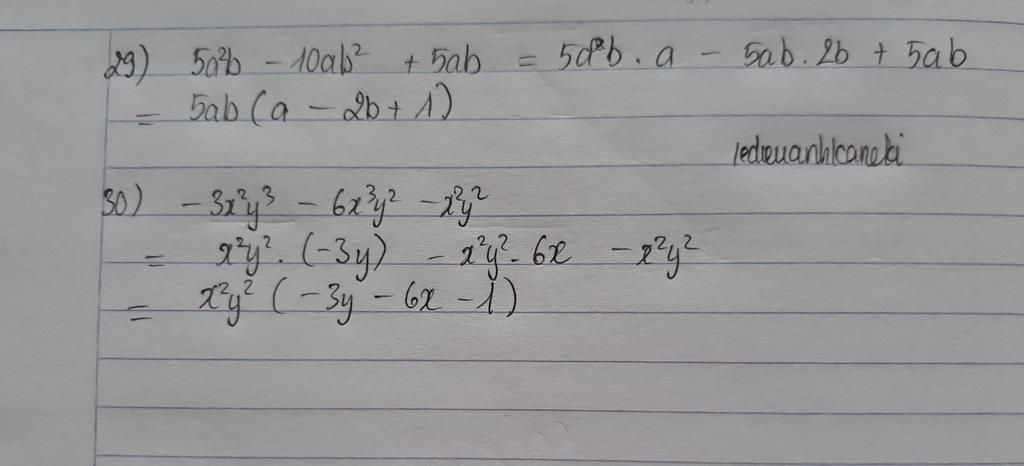 29) 5a²b - 10ab² + 5ab = 5a²b . a - 5ab . 2b + 5ab
= 5ab (a - 2b + 1)
ledieuanhkaneki
30) - 3x²y³ - 6x³y² - x²y²
= x²y² . (-3y) - x²y² . 6x - x²y²
= x²y² ( -3y - 6x - 1)